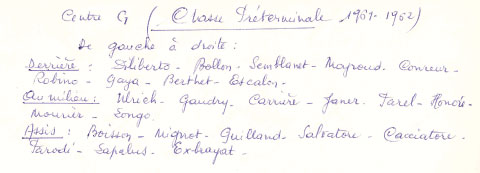 Centre G ( Classe Préterminale 1961-1962)
De gauche à droite :
Derrière : Siliberto - Bollon - Semblanet - Mayroud - Conreur -
Robino - Gaya - Berthet - Escalon -
Au milieu : Ulrich - Gaudry - Carrière - Janer - Farel - Honcié -
Mounier - Songo
Assis : Boisson - Mignot - Guilland - Salvatore - Cacciatore -
Parodi - Sapelus - Exbrayat -